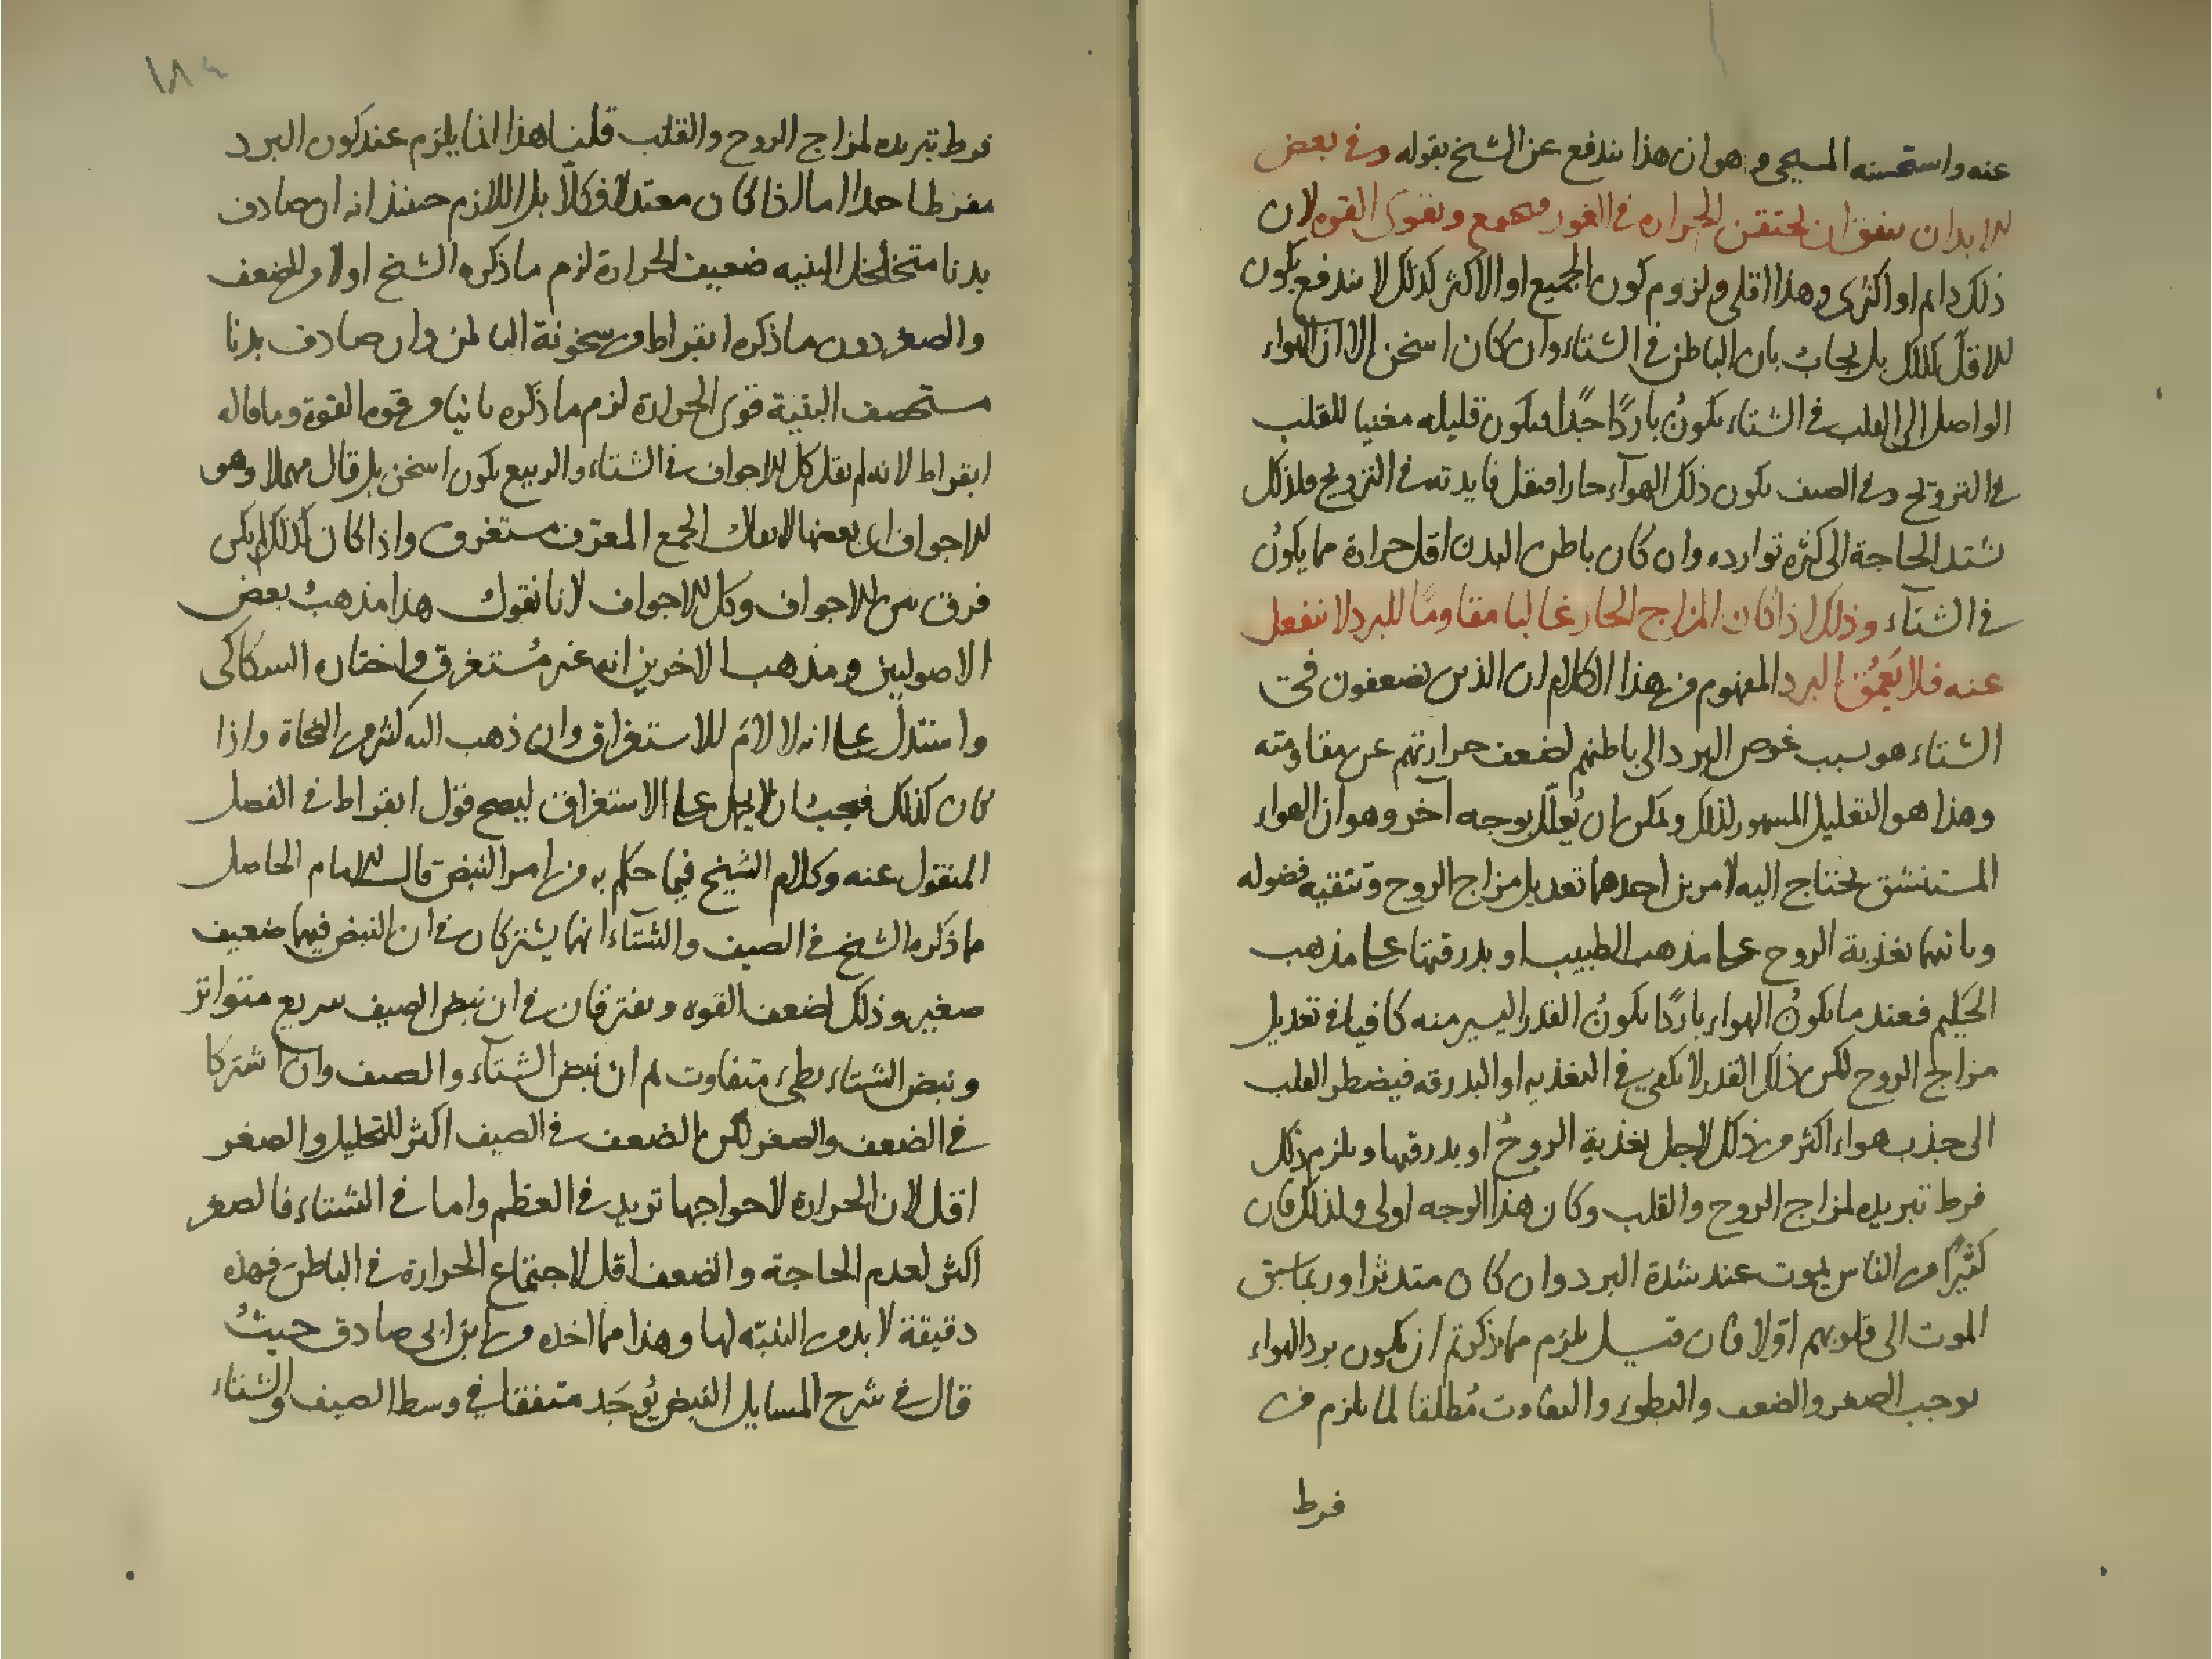 عنه واستحسنه المسيحى وهو ان هذا يندفع عن الشيخ بقوله وفى بعض
الابدان يتفق ان تحتقن الحرارة فى الغور وتجتمع وتقوى القوه لان
ذلك دايم او اكثرى وهذا اقلى ولزوم كون الجميع او الاكثر كذلك لا يندفع بكون
الاقل كذلك بل يجاب بان الباطن فى الشتاء وان كان اسخن الا ان الهواء
الواصل الى القلب فى الشتاء يكون باردًا جدًا فيكون قليله مغنيا للقلب
فى الترويح وفى الصيف يكون ذلك الهوآء حارا فيقل فايدته فى الترويح فلذلك
تشتد الحاجة الى كثرة توارده وان كان باطن البدن اقل حرارة مما يكون
فى الشتآء وذلك اذا كان المزاج الحار غالبا مقاومًا للبرد لا ينفعل
عنه فلا يَعمُق البرد المفهوم من هذا الكلام ان الذين يضعفون فى
الشتاء هو بسبب غوص البرد الى باطنهم لضعف حرارتهم عن مقاومته
وهذا هو التعليل المشهور لذلك ويمكن ان يُعلّل بوجه آخر وهو ان الهواء
المستنشق يحتاج اليه لامرين احدهما تعديل مزاج الروح وتنقيه فضوله
وثانيهما تغذية الروح على مذهب الطبيب او بدرقتها على مذهب
الحكيم فعند ما يكونُ الهواء باردًا يكونُ القدر اليسير منه كافيا فى تعديل
مزاج الروح لكن ذلك القدر لا يكفى فى التغذيه او البدرقه فيضطر القلب
الى جذب هواء اكثر من ذلك لاجل تغذية الروح او بدرقتها ويلزم ذلك
فرط تبريده لمزاج الروح والقلب وكان هذا الوجه اولى ولذلك فان
كثيرًا من الناس يموت عند شدة البرد وان كان متدثرا وربما سبق
الموت الى قلوبهم اولا فان قيل يلزم مما ذكرتم ان يكون برد الهواء
يوجب الصغر والضعف والبطوء والتفاوت مُطلقا لما يلزم من
فرط
١٨٤
فرط تبريده لمزاج الروح والقلب قلنا هذا انما يلزم عند كون البرد
مفرطا جدا اما اذا كان معتدلا فكلا بل اللازم حينئذ انه ان صادف
بدنا متخلخل البنيه ضعيف الحرارة لزم ما ذكره الشيخ اولا من الضعف
والصغر دون ما ذكره ابقراط من سخونة الباطن وان صادف بدنا
مستحصف البنية قوى الحرارة لزم ما ذكره ثانيا من قوه القوة وما قاله
ابقراط لانه لم يقل كل الاجواف فى الشتاء والربيع يكون اسخن بل قال مهملا وهو
الاجواف اى بعضها لا يقال الجمع المعرّف مستغرق واذا كان كذلك لم يكن
فرق بين الاجواف وكل الاجواف لانا نقول هذا مذهبُ بعض
الاصوليين ومذهب الاخرين انه غير مُستغرق واختاره السكاكى
واستدل على انه لا لامَ للاستغراق وان ذهب اليه كثير من النحاة واذا
كان كذلك فيجب ان لا يحمل على الاستغراق ليصح قول ابقراط فى الفصل
المنقول عنه وكلام الشيخ فيما حكم به من امر النبض قال الامام الحاصل
مما ذكره الشيخ فى الصيف والشتآء انهما يشتركان فى ان النبض فيهما ضعيف
صغير وذلك لضعف القوه ويفترقان فى ان نبض الصيف سريع متواتر
ونبض الشتاء بطىء متفاوت ثم ان نبض الشتآء والصيف وان اشتركا
فى الضعف والصغر لكن الضعف فى الصيف اكثر للتحليل والصغر
اقل لان الحرارة لاحواجها تزيد فى العظم واما فى الشتاء فالصغر
اكثر لعدم الحاجة والضعف اقل لاجتماع الحرارة فى الباطن فهذه
دقيقة لا بد من التنبّه لها وهذا مما اخذه من ابن ابى صادق حيثُ
قال فى شرح المسايل النبض يُوجَد متفقا فى وسط الصيف والشتاء